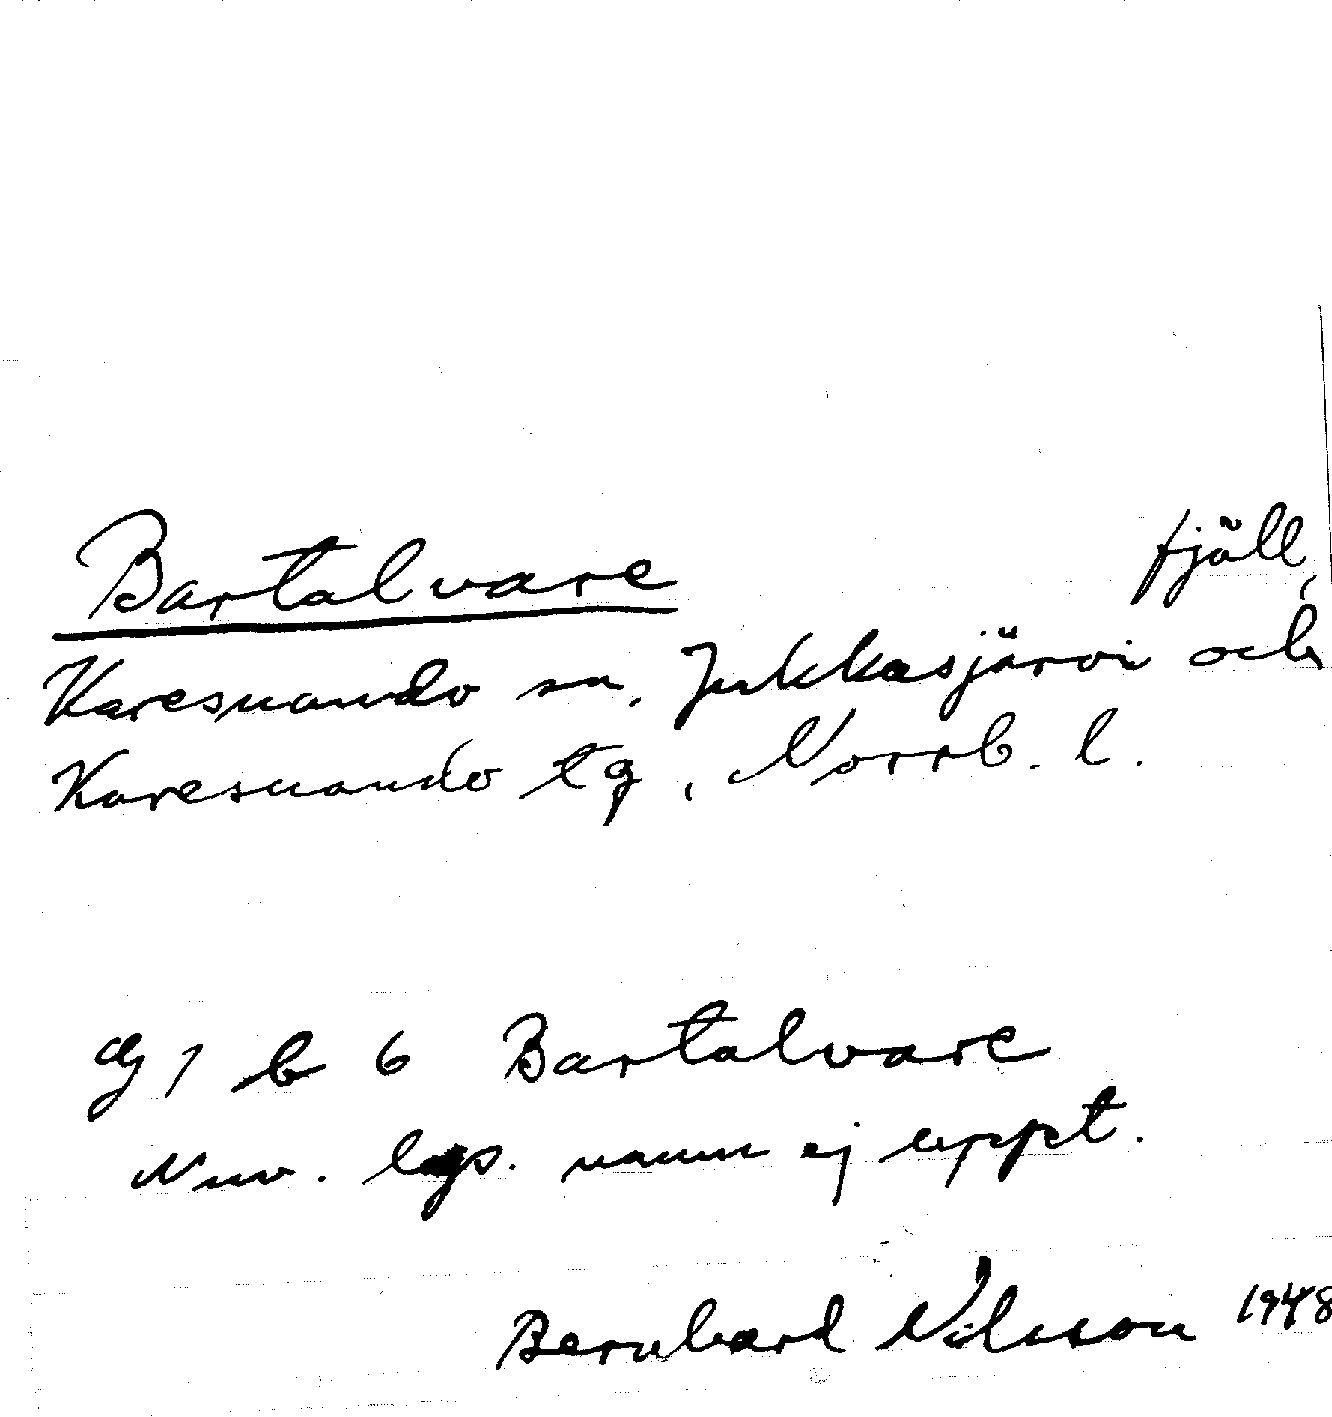 Bartalvare fjäll,
Karesuando sn, Jukkasjärvi och
Karesuando tg, Norrb. l.
1 b 6 Bartalvare
Nuv. lgs. namn ej uppt.
Bernhard Nilsson 1948